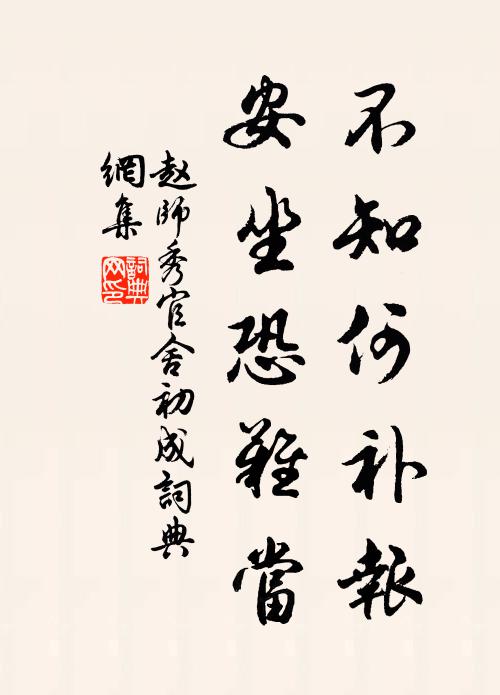 不知何补報
安坐恐難當
赵師秀官舍初成詞典
網集
詞典
网印